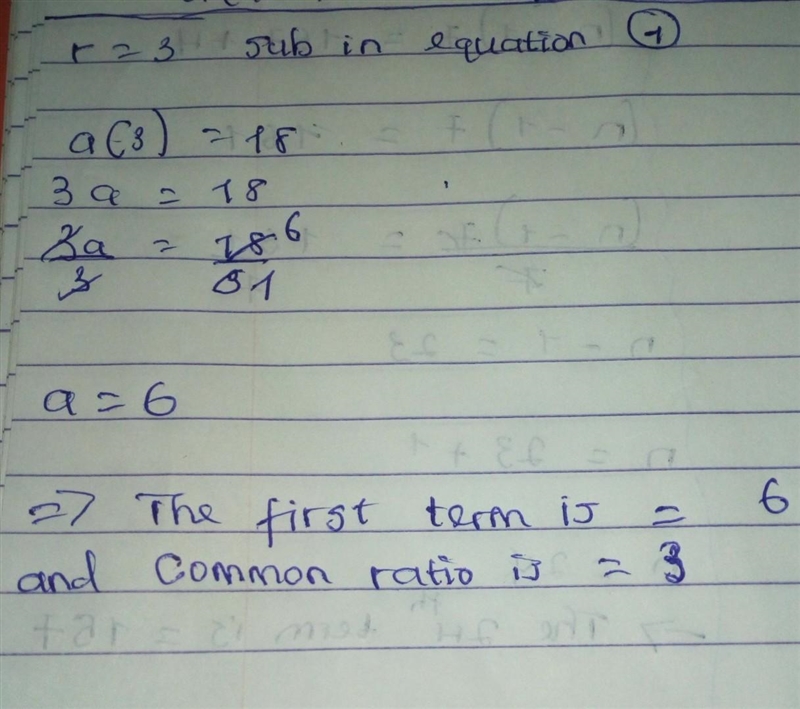 r = 3 sub in equation ①
a(3) = 18
3a = 18
3a = 18 6
3 3 1
a = 6
=> The first term is = 6
and Common ratio is = 3